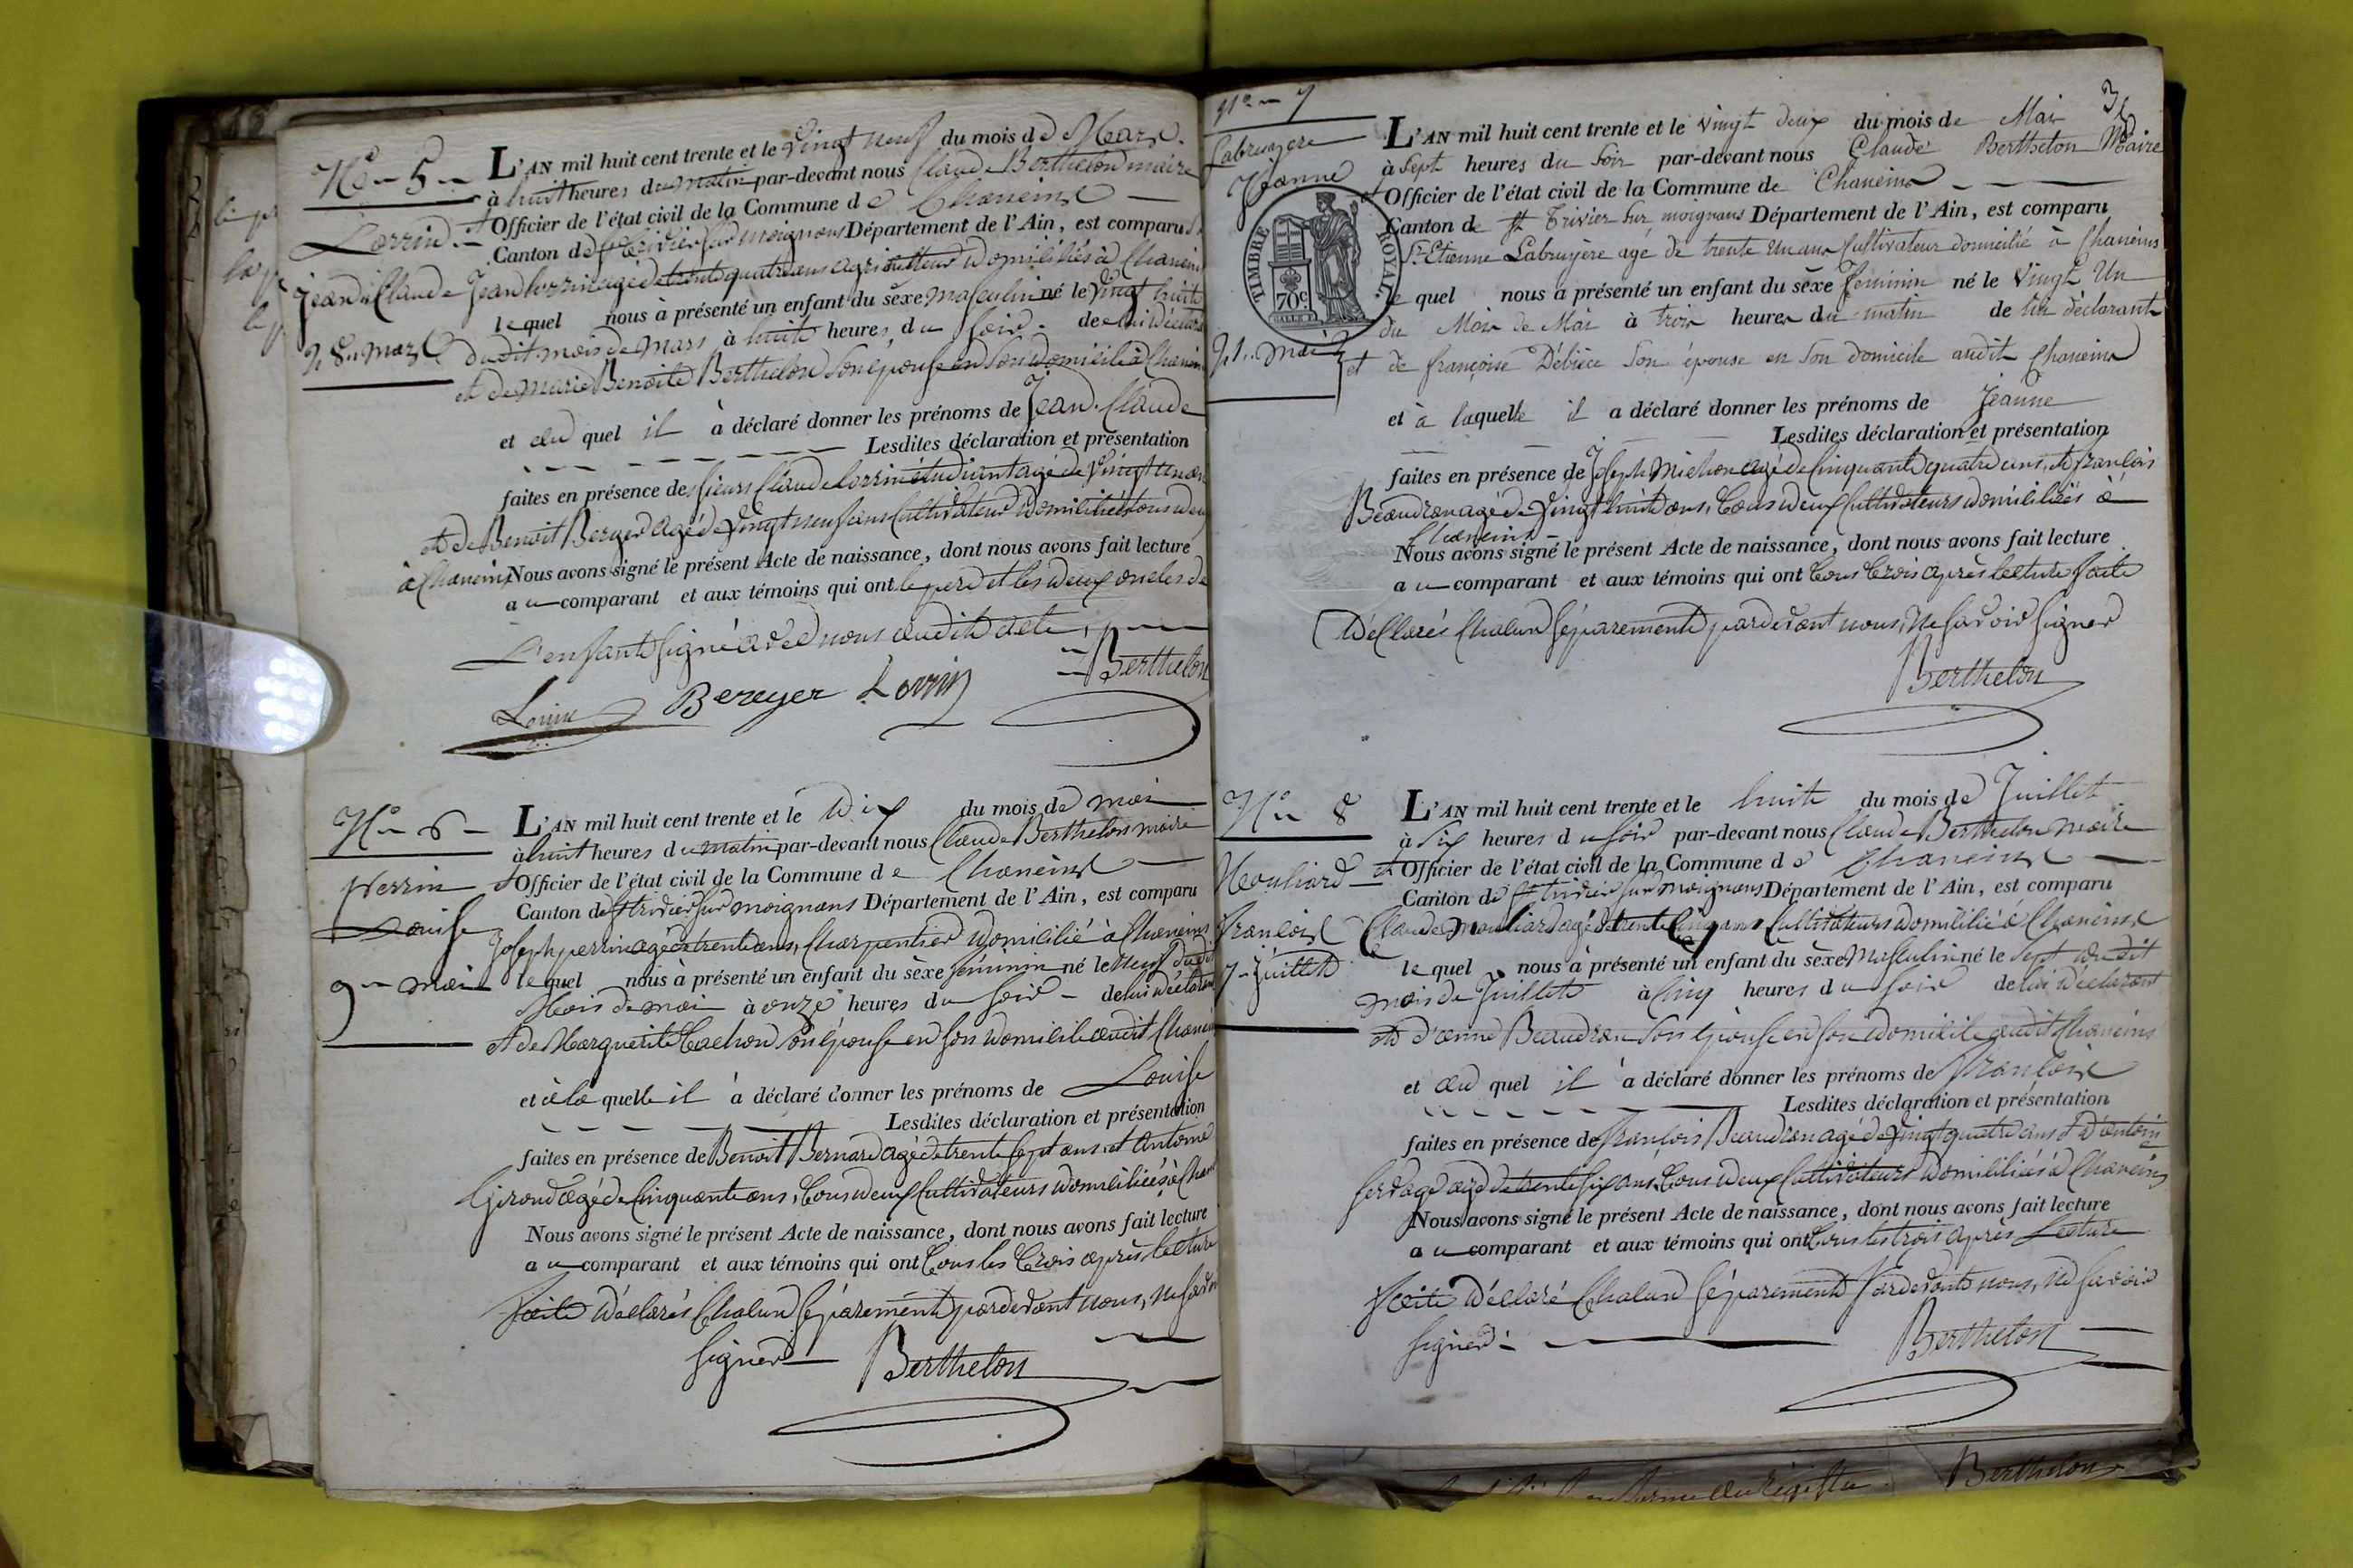 N° 5
Lorrin
Jean Claude
28 mars
L'AN mil huit cent trente et le vingt neuf du mois de Mars
à huit heures du matin par-devant nous Claude Berthelon maire
et Officier de l'état civil de la Commune de Chaneins
Canton de St trivier sur moignans Département de l'Ain, est comparu
Jean Lorrin agé de trente quatre ans agriculteur domicilié à Chaneins
lequel nous à présenté un enfant du sèxe masculin né le vingt huit
dudit mois de mars à huit heures du soir de lui déclarant
et de marie Benoite Berthelon son épouse en son domicile à Chaneins
et au quel il à déclaré donner les prénoms de Jean Claude
Lesdites déclaration et présentation
faites en présence des sieurs Claude Lorrin étudiant agé de vingt un ans
et de Benoit Berger agé de vingt neuf ans Cultivateur domiciliés tous deux
à Chaneins Nous avons signé le présent Acte de naissance, dont nous avons fait lecture
au comparant et aux témoins qui ont le père et les deux oncles de
L'enfant signé avec nous audit acte
Berthelon
Lorrin Bereyer Lorrin
N° 6
perrin
Louise
9 mai
L'AN mil huit cent trente et le dix du mois de mai
à huit heures du matin par-devant nous Claude Berthelon maire
et Officier de l'état civil de la Commune de Chaneins
Canton de St trivier sur moignans Département de l'Ain, est comparu
Joseph perrin agé de trente ans, Charpentier domicilié à Chaneins
lequel nous à présenté un enfant du sèxe féminin né le neuf dudit
Mois de mai à onze heures du soir de lui déclarant
et de Marguerite Cachon son épouse en son domicile audit Chaneins
et à la quelle il à déclaré donner les prénoms de Louise
Lesdites déclaration et présentation
faites en présence de Benoit Bernard agé de trente sept ans et Antoine
Girond agé de Cinquante ans, tous deux Cultivateurs domiciliés à Chan
Nous avons signé le présent Acte de naissance, dont nous avons fait lecture
au comparant et aux témoins qui ont tous les trois après lecture
faite déclarés Chacun séparement pardevant nous, ne savoir
signer Berthelon
N° 7
Labruyere
Jeanne
TIMBRE ROYAL.
70c
21 mai
3
L'AN mil huit cent trente et le vingt deux du mois de Mai
à sept heures du soir par-devant nous Claude Berthelon Maire
et Officier de l'état civil de la Commune de Chaneins
Canton de St Trivier sur moignans Département de l'Ain, est comparu
Sr Etienne Labruyère agé de trente un ans Cultivateur domicilié à Chaneins
le quel nous à présenté un enfant du sèxe féminin né le vingt un
du Mois de Mai à trois heures du matin de lui déclarant
et de françoise Débièce son épouse en son domicile audit Chaneins
et à laquelle il a déclaré donner les prénoms de Jeanne
Lesdites déclaration et présentation
faites en présence de Joseph Michon agé de Cinquante quatre ans, et françois
Beaudran agé de vingt huit ans, tous deux Cultivateurs domiciliés à
Chaneins
Nous avons signé le présent Acte de naissance, dont nous avons fait lecture
au comparant et aux témoins qui ont tous trois après lecture faite
déclarés Chacun séparement pardevant nous, Ne savoir signer
Berthelon
N° 8
Mouliard
françois
7 Juillet
L'AN mil huit cent trente et le huit du mois de Juillet
à six heures du soir par-devant nous Claude Berthelon maire
et Officier de l'état civil de la Commune de Chaneins
Canton de St trivier sur moignans Département de l'Ain, est comparu
Claude Mouliard agé de trente Cinq ans Cultivateurs domicilié à Chaneins
lequel nous à présenté un enfant du sèxe Masculin né le sept dudit
mois de Juillet à Cinq heures du soir de lui déclarant
et d'anne Beaudran son épouse en son domicile audit Chaneins
et au quel il a déclaré donner les prénoms de françois
Lesdites déclaration et présentation
faites en présence de françois Beaudran agé de vingt quatre ans et d'antoine
agé de trente six ans, tous deux Cultivateurs domiciliés à Chaneins
Nous avons signé le présent Acte de naissance, dont nous avons fait lecture
au comparant et aux témoins qui ont tous les trois après Lecture
faite déclaré Chacun séparement Pardevant nous, ne savoir
signer Berthelon
Berthelon